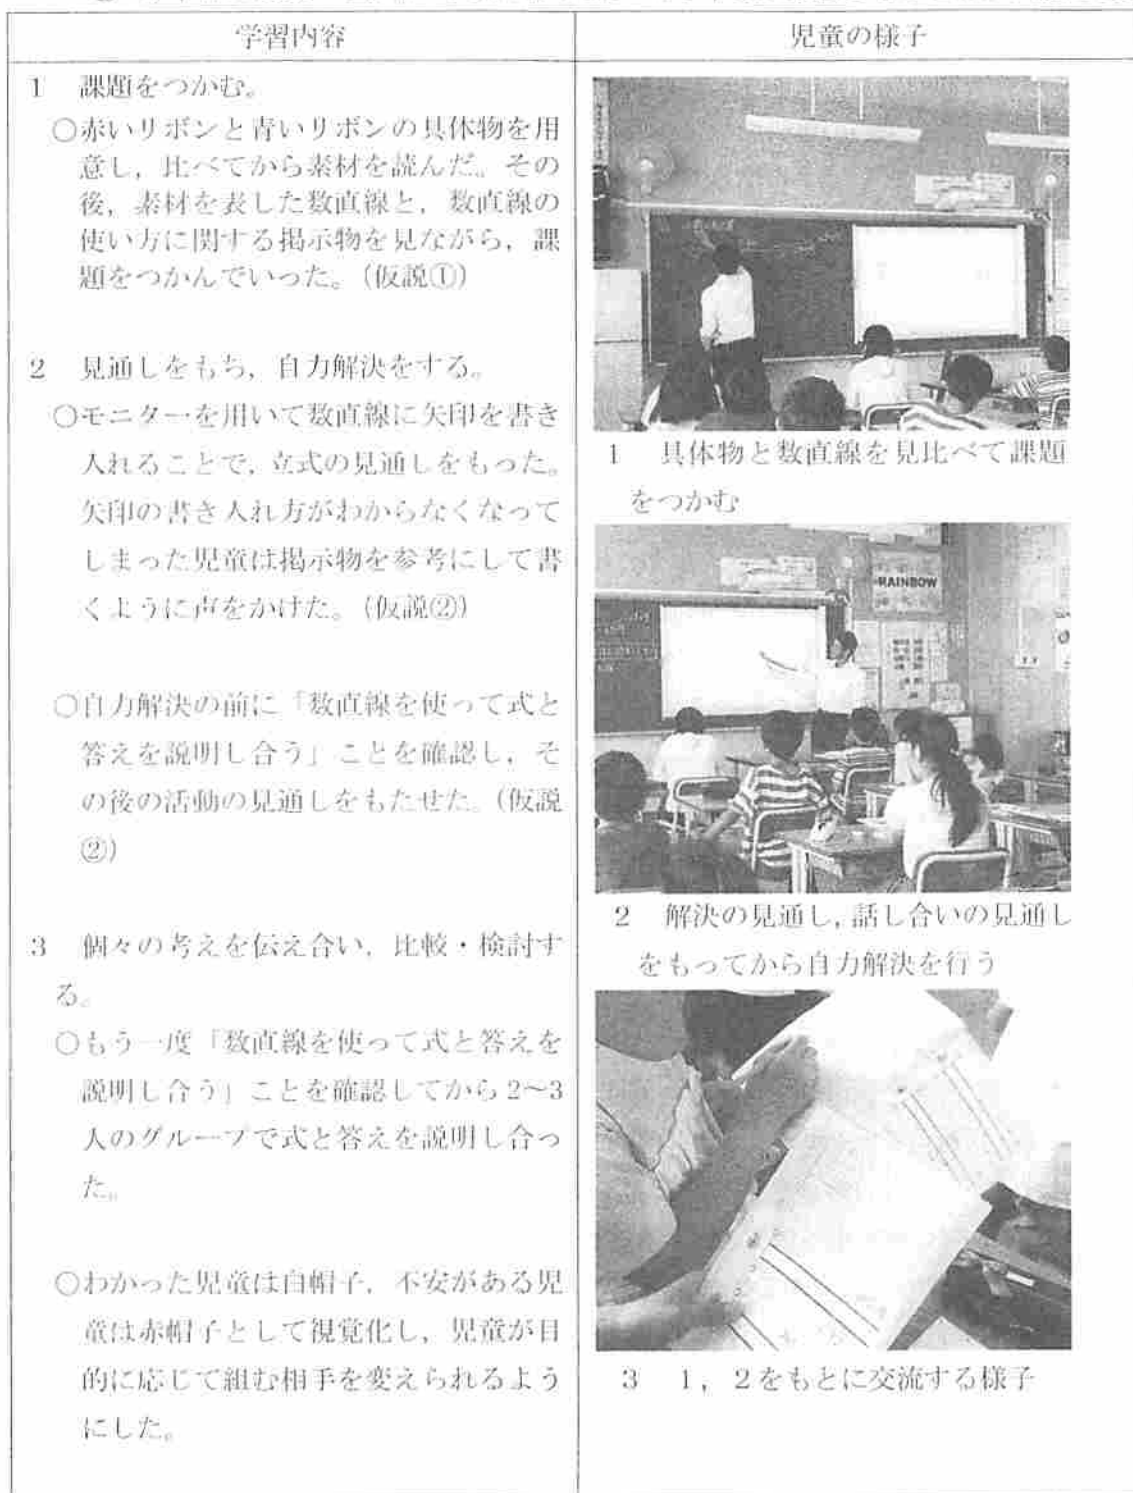 学習内容
1 課題をつかむ。
○赤いリボンと青いリボンの具体物を用
意し，比べてから素材を読んだ。その
後，素材を表した数直線と，数直線の
使い方に関する掲示物を見ながら，課
題をつかんでいった。（仮説①）
2 見通しをもち，自力解決をする。
○モニターを用いて数直線に矢印を書き
入れることで，立式の見通しをもった。
矢印の書き入れ方がわからなくなって
しまった児童は掲示物を参考にして書
くように声をかけた。（仮説②）
○自力解決の前に「数直線を使って式と
答えを説明し合う」ことを確認し，そ
の後の活動の見通しをもたせた。（仮説
②）
3 個々の考えを伝え合い，比較・検討す
る。
○もう一度「数直線を使って式と答えを
説明し合う」ことを確認してから2～3
人のグループで式と答えを説明し合っ
た。
○わかった児童は白帽子，不安がある児
童は赤帽子として視覚化し，児童が目
的に応じて組む相手を変えられるよう
にした。
児童の様子
1 具体物と数直線を見比べて課題
をつかむ
RAINBOW
2 解決の見通し，話し合いの見通し
をもってから自力解決を行う
3 1，2をもとに交流する様子